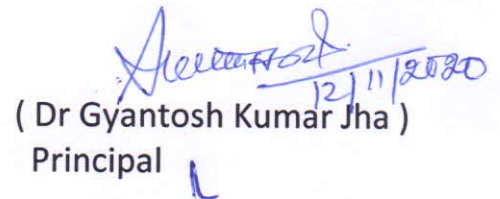 12/11/2020
( Dr Gyantosh Kumar Jha )
Principal